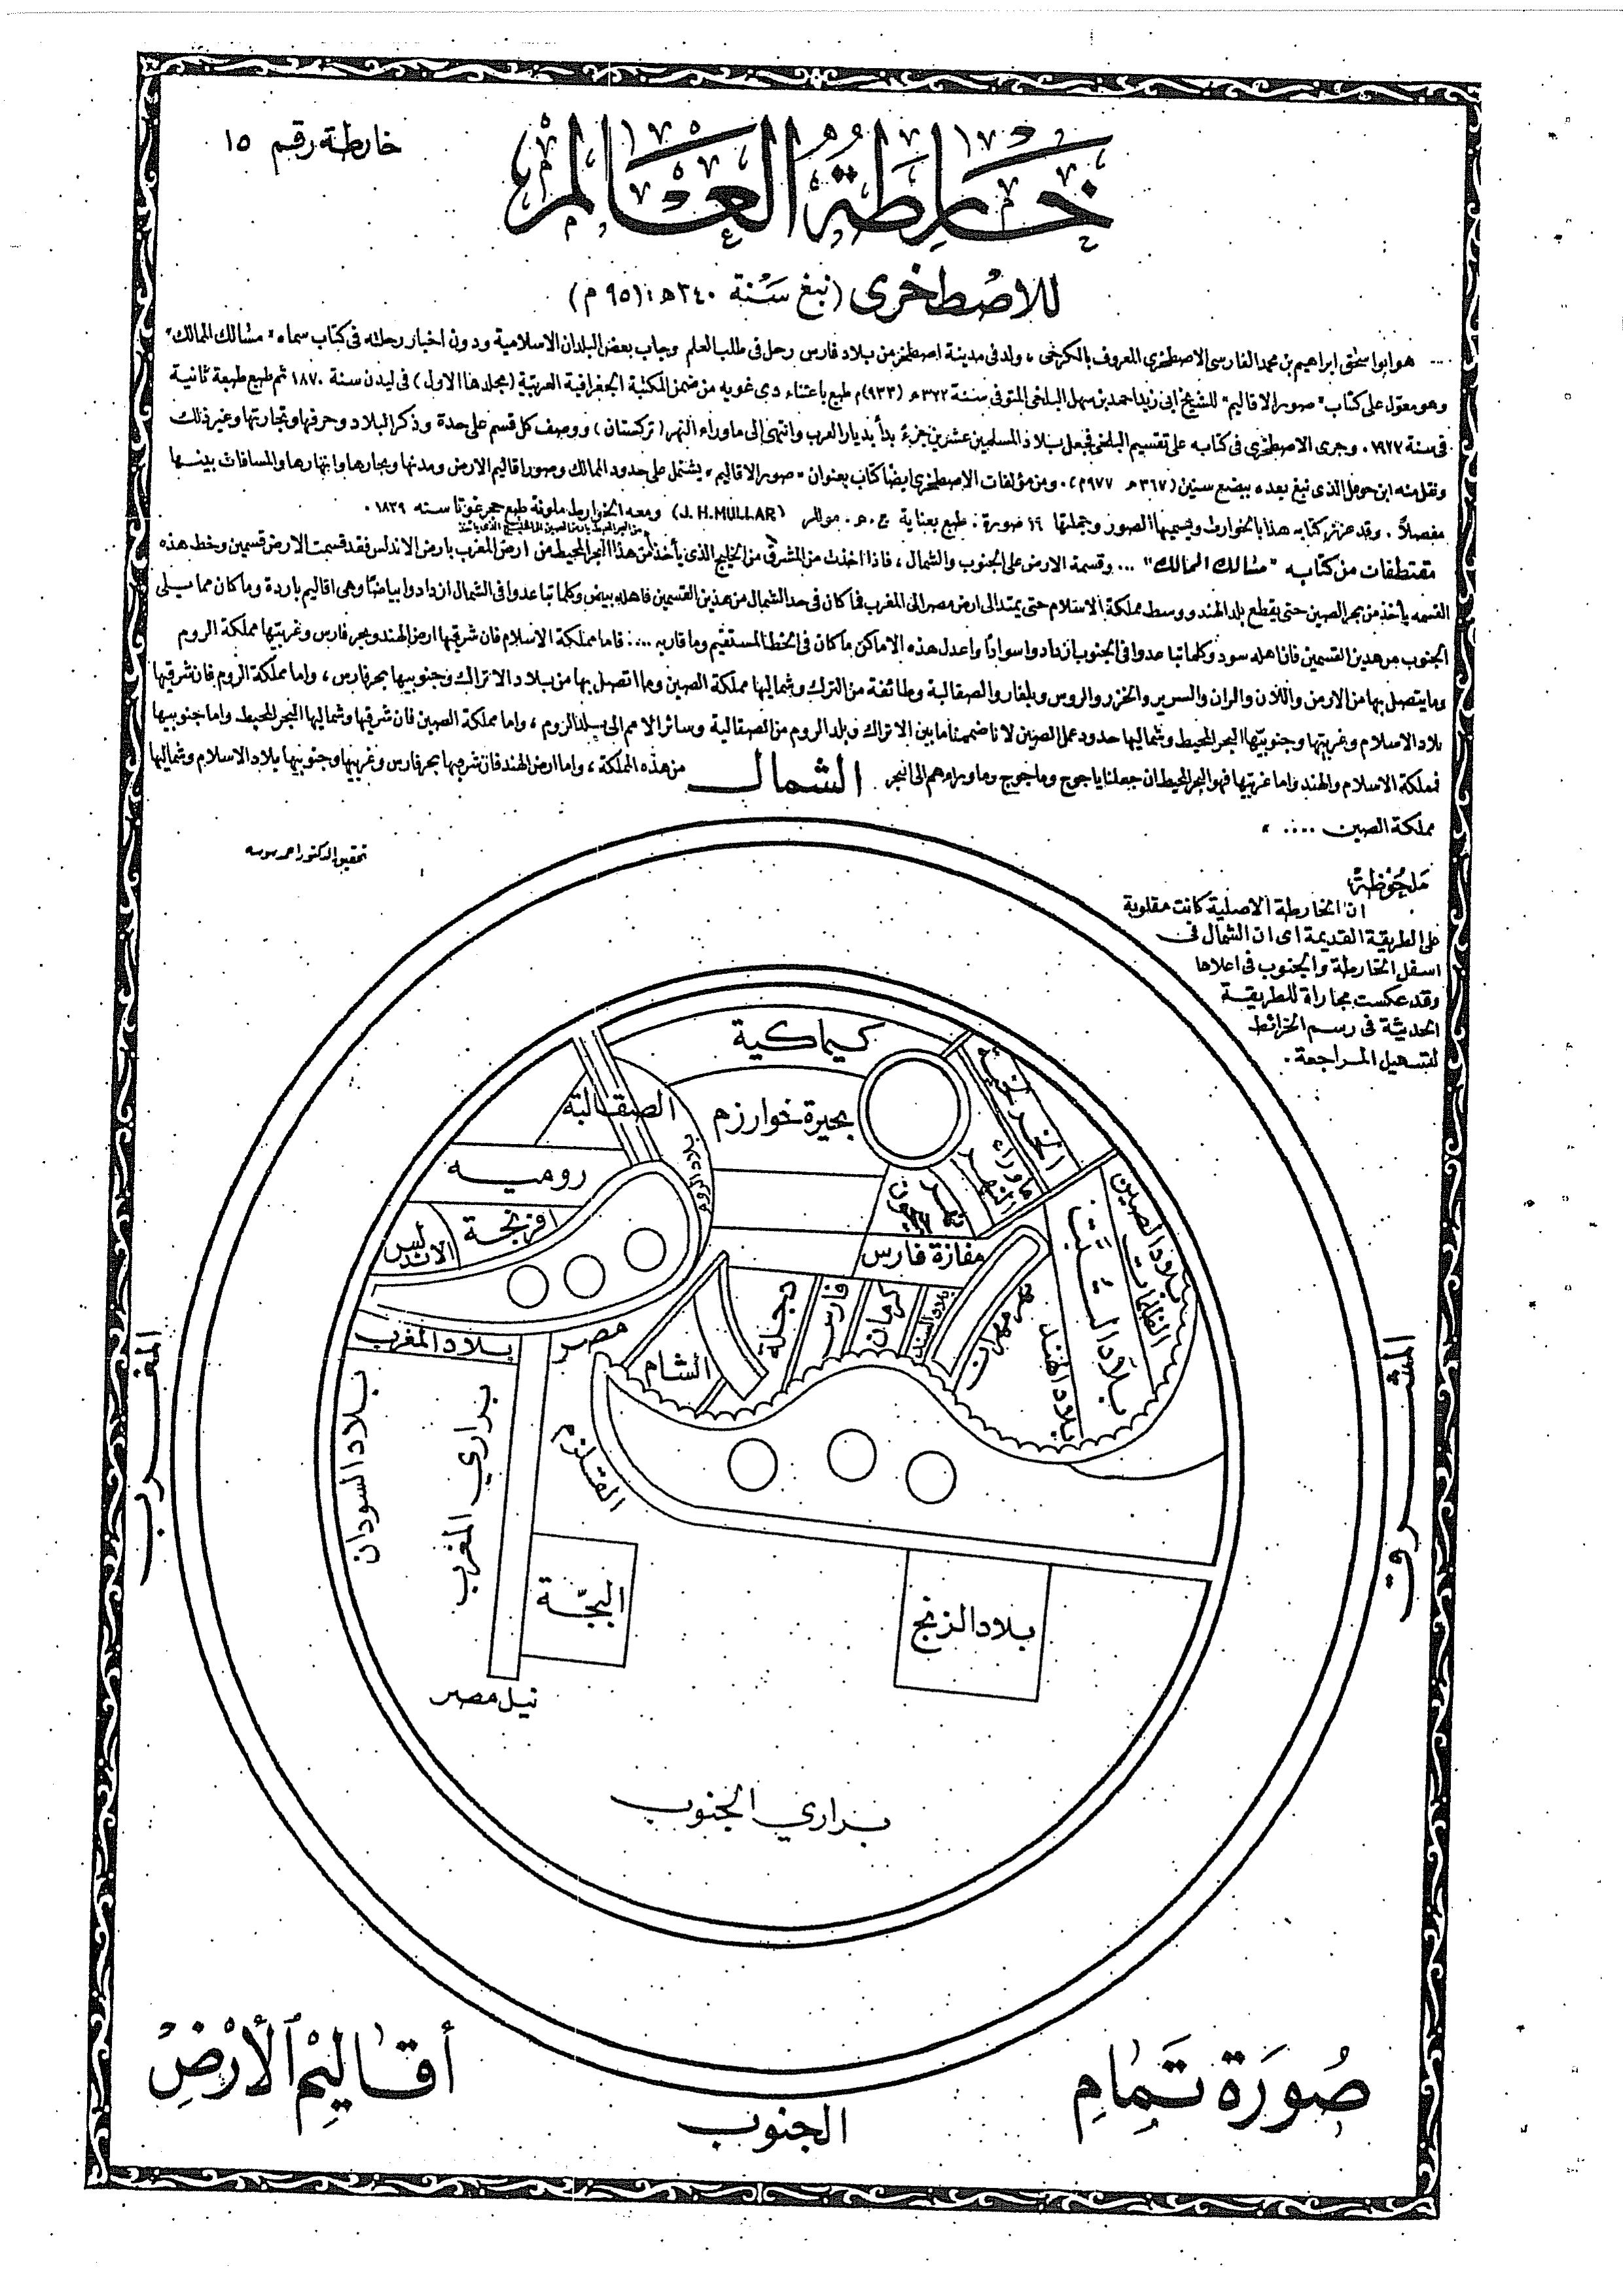 خارطة رقم ١٥
خَارِطَةُ العَالَمِ
للاصْطخرى (نبغ سَنة ٣٤٠هـ: ٩٥١ م)
.... هو ابو اسحق ابراهيم بن محمد الفارسى الاصطخرى المعروف بالكرخى، ولد فى مدينة اصطخر من بلاد فارس رحل فى طلب العلم وجاب بعض البلدان الاسلامية ودون اخبار رحلته فى كتاب سماه "مسالك الممالك"
وهو معوّل على كتاب "صور الاقاليم" للشيخ ابى زيد احمد بن سهل البلخى المتوفى سنة ٣٢٢ هـ (٩٣٣)م طبع باعتناء دى غويه من ضمن المكتبة الجغرافية العربية (مجلدها الاول) فى ليدن سنة ١٨٧٠ ثم طبع طبعة ثانية
فى سنة ١٩٢٧. وجرى الاصطخرى فى كتابه على تقسيم البلخى فجعل بلاد المسلمين عشرين جزءً بدأ بديار العرب وانتهى الى ماوراء النهر (تركستان) ووصف كل قسم على حدة وذكر البلاد وحرفها وتجارتها وغير ذلك
ونقل منه ابن حوقل الذى نبغ بعده ببضع سنين (٣٦٧ هـ ٩٧٧ م). ومن مؤلفات الاصطخرى ايضاً كتاب بعنوان "صور الاقاليم" يشتمل على حدود الممالك وصور اقاليم الارض ومدنها وبحارها وانهارها والمسافات بينها
مفصلاً. وقد عزز كتابه هذا بالخوارط ويسميها الصور وجملتها ١٩ صورة: طبع بعناية ج. هـ. موللر (J.H.MULLAR) ومعه الخوارط ملونة طبع حجر غوتا سنه ١٨٣٩.
مقتطفات من كتابه "مسالك الممالك" ... وقسمة الارض على الجنوب والشمال، فاذا اخذت من المشرق من الخليج الذى يأخذ من هذا البحر المحيط من ارض المغرب بارض الاندلس فقد قسمت الارض قسمين وخط هذه
القسمه يأخذ من بحر الصين حتى يقطع بلد الهند ووسط مملكة الاسلام حتى يمتد الى ارض مصر الى المغرب فما كان فى حد الشمال من هذين القسمين فاهله بيض وكلما تباعدوا فى الشمال ازدادوا بياضا وهى اقاليم باردة وما كان مما يلى
الجنوب من هذين القسمين فان اهله سود وكلما تباعدوا فى الجنوب ازدادوا سوادا واعدل هذه الاماكن ما كان فى الخط المستقيم وما قاربه ....: فاما مملكة الاسلام فان شرقيها ارض الهند وبحر فارس وغربيها مملكة الروم
وما يتصل بها من الارمن واللان والران والسرير والخزر والروس وبلغار والصقالبة وطائفة من الترك وشماليها مملكة الصين وما اتصل بها من بلاد الاتراك وجنوبيها بحر فارس، واما مملكة الروم فان شرقيها
بلاد الاسلام وغربيها وجنوبيها البحر المحيط وشماليها حدود عمل الصين لانا ضممنا ما بين الاتراك وبلد الروم من الصقالبة وسائر الامم الى بلد الروم، واما مملكة الصين فان شرقيها وشماليها البحر المحيط واما جنوبيها
فمملكة الاسلام والهند واما غربيها فهو البحر المحيط ان جعلنا ياجوج وماجوج وما وراءهم الى البحر من هذه المملكة، واما ارض الهند فان شرقيها بحر فارس وغربيها وجنوبيها بلاد الاسلام وشماليها
مملكة الصين .... "
تحقيق الدكتور احمد سوسه
الشمال
مَلحُوظَة
ان الخارطة الاصلية كانت مقلوبة
على الطريقة القديمة اى ان الشمال فى
اسفل الخارطة والجنوب فى اعلاها
وقد عكست مجاراة للطريقة
الحديثة فى رسم الخرائط
لتسهيل المراجعة.
كيماكية
الصقالبة
بحيرة خوارزم
ماوراء
النهر
روميه
بلاد الروم
نهر
جيحون
افرنجة
الاندلس
مفازة فارس
بلاد الصين
بلاد التُبَّت
دجلة
فارس
كرمان
بلاد السند
نهر مهران
بلاد الهند
بلاد المغرب
مصر
الشام
القلزم
بلاد السودان
براري المغرب
البجّة
بلاد الزنج
نيل مصر
براري الجنوب
المغرب
المشرق
الجنوب
صُورَة تَمَامِ
أقَاليْم الأرْضِ